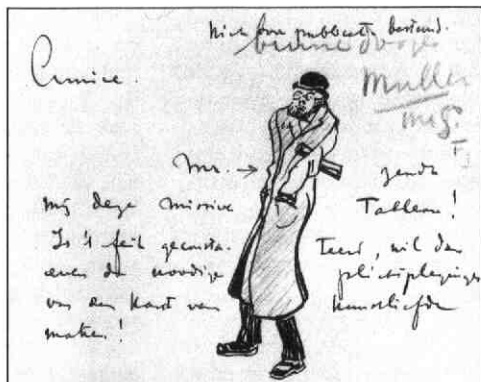 Niet voor publicatie bestemd.
Amice.
Muller
Mr. → zendt
mij deze missive Tableau!
Is 't feit geconsta- teerd, wil dan
even de noodige plichtplegingen
van een kaart van kunstliefde
maken!